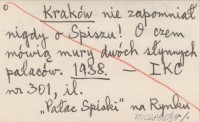 Kraków nie zapomniał
nigdy o Spiszu! O czem
mówią mury dwóch słynnych
pałaców. 1938. — IKC
nr 301, il.
"Pałac Spiski" na Rynku